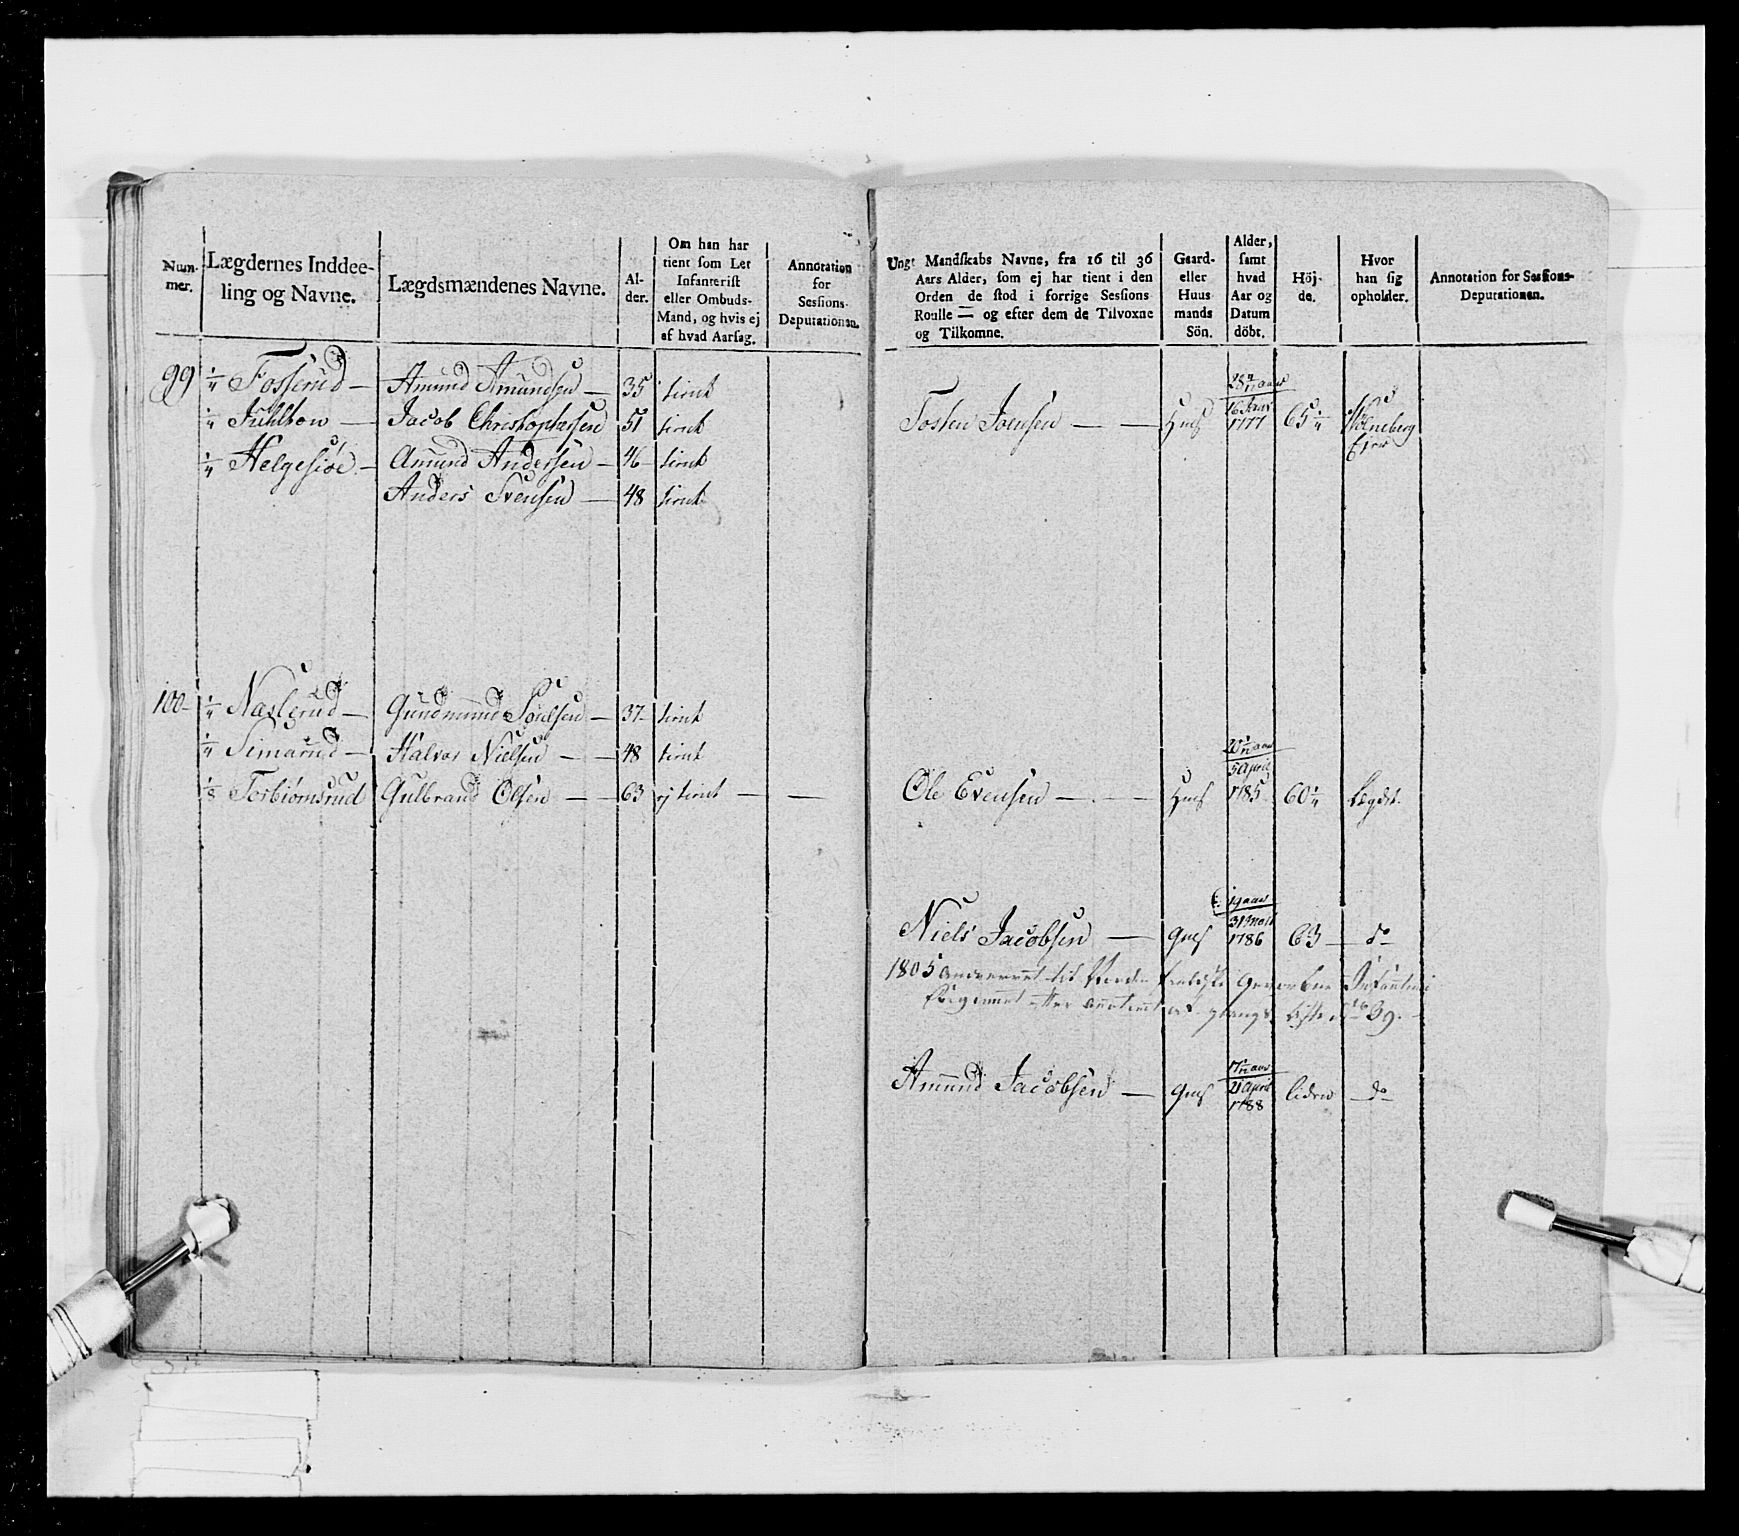 Num-
mer.
Lægdernes Inddee-
ling og Navne.
Lægdsmændenes Navne.
Al-
der.
Om han har
tient som Let
Infanterist
eller Ombuds-
Mand, og hvis ej
af hvad Aarsag.
Annotation
for
Sessions-
Deputationen.
99 1/4 Fosserud — Amund Amundsen — 35 tient
1/4 — Jacob Christophersen 51 tient
1/4 Helgesiøe — Amund Andersen — 46 tient
Anders Svensen — 48 tient
100 1/4 — Gundmund — 37 tient
1/4 Simarud — Halvor Nielsen — 48 tient
1/8 Torbiørnsrud Gulbrand Olsen — 63 ej tient — —
Ungt Mandskabs Navne, fra 16 til 36
Aars Alder, som ej har tient i den
Orden de stod i forrige Sessions
Roulle — og efter dem de Tilvoxne
og Tilkomne.
Gaard-
eller
Huus
mands
Sön.
Alder,
samt
hvad
Aar og
Datum
döbt.
Höj-
de.
Hvor
han sig
opholder.
Annotation for Sessions-
Deputationen.
Tosten Joensen — — Hms 1777 65 1/4
5 April
Ole Evensen — — Hms 1785 60 1/4 Lægdet.
Niels Jacobsen — Gms 1786 63 — do
1805 til Infanterie
Regiment No 39.
21 April
Amund Jacobsen — Gms 1788 liden — do